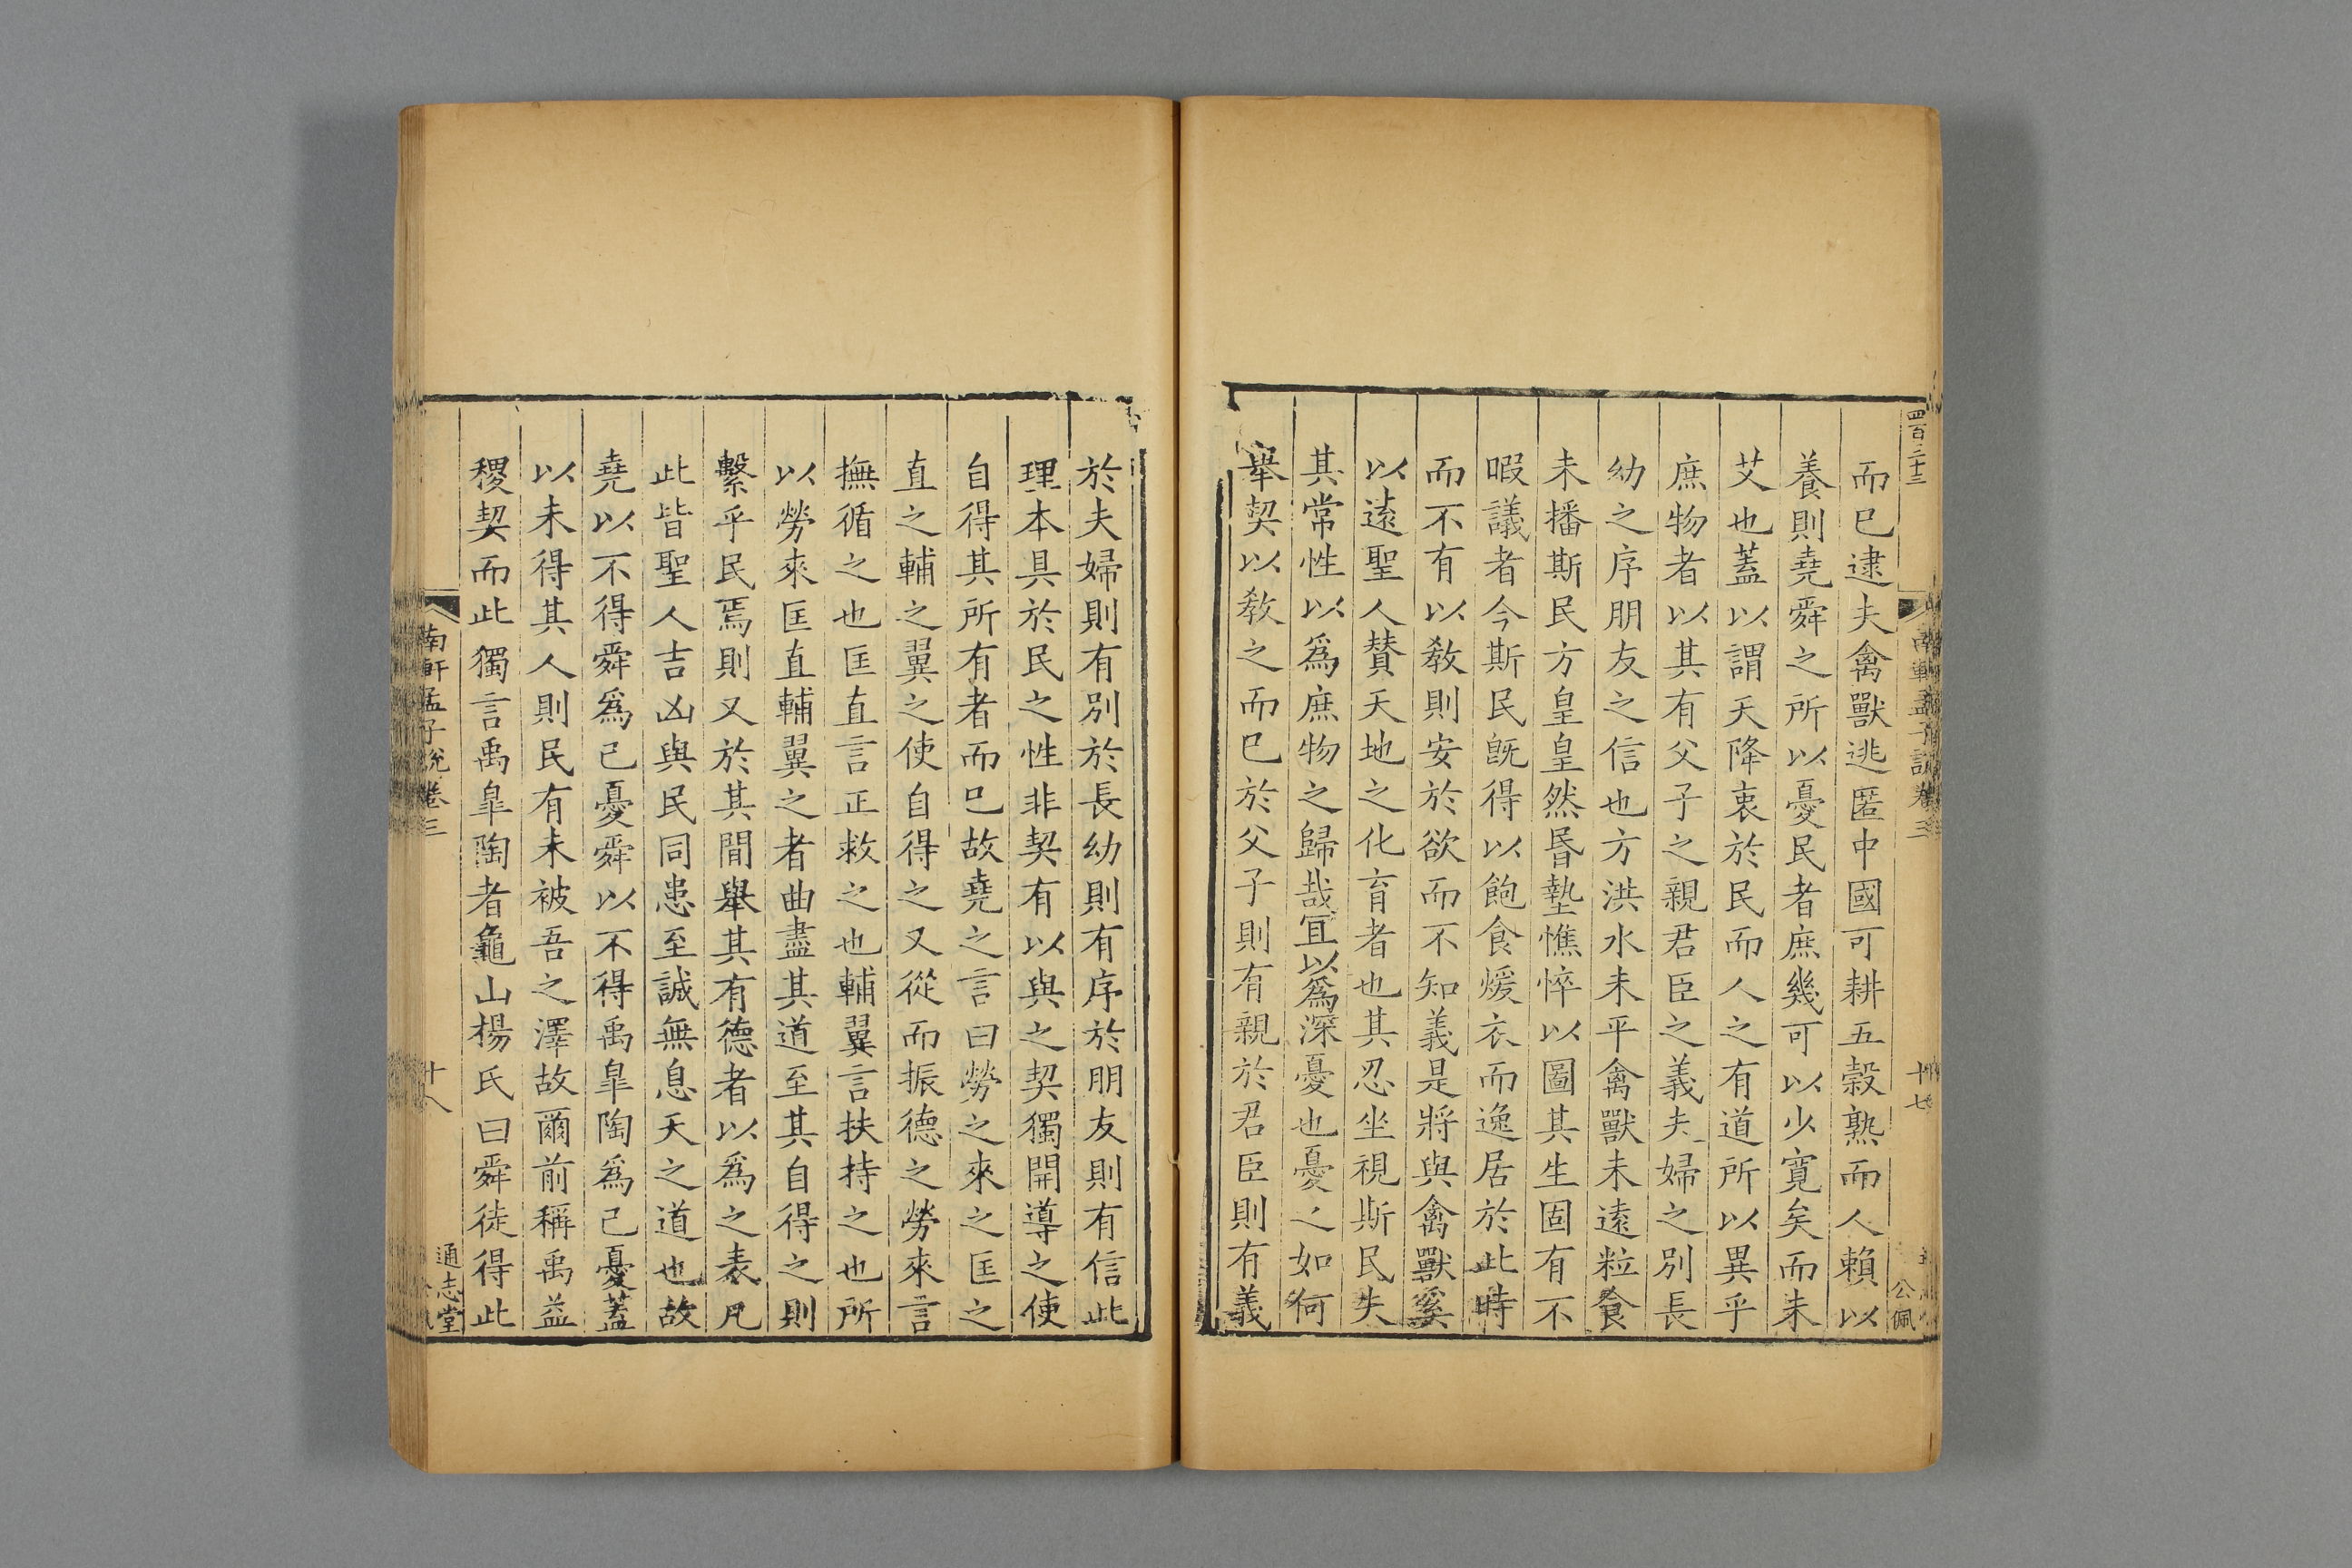 四百三十三
南軒孟子說卷三
十七
公佩
而巳逮夫禽獸逃匿中國可耕五榖熟而人賴以
養則堯舜之所以憂民者庶幾可以少寛矣而未
艾也蓋以謂天降衷於民而人之有道所以異乎
庶物者以其有父子之親君臣之義夫婦之別長
幼之序朋友之信也方洪水未平禽獸未遠粒食
未播斯民方皇皇然昬墊憔悴以圖其生固有不
暇議者今斯民旣得以飽食煖衣而逸居於此時
而不有以敎則安於欲而不知義是將與禽獸奚
以遠聖人賛天地之化育者也其忍坐視斯民失
其常性以爲庶物之歸哉冝以爲深憂也憂之如何
舉契以敎之而巳於父子則有親於君臣則有義
於夫婦則有別於長幼則有序於朋友則有信此
理本具於民之性非契有以與之契獨開導之使
自得其所有者而巳故堯之言曰勞之來之匡之
直之輔之翼之使自得之又從而振德之勞來言
撫循之也匡直言正救之也輔翼言扶持之也所
以勞來匡直輔翼之者曲盡其道至其自得之則
繫乎民焉則又於其閒舉其有德者以爲之表凡
此皆聖人吉凶與民同患至誠無息天之道也故
堯以不得舜爲己憂舜以不得禹臯陶爲己憂蓋
以未得其人則民有未被吾之澤故爾前稱禹益
稷契而此獨言禹臯陶者龜山楊氏曰舜徒得此
南軒孟子說卷三
十八
通志堂